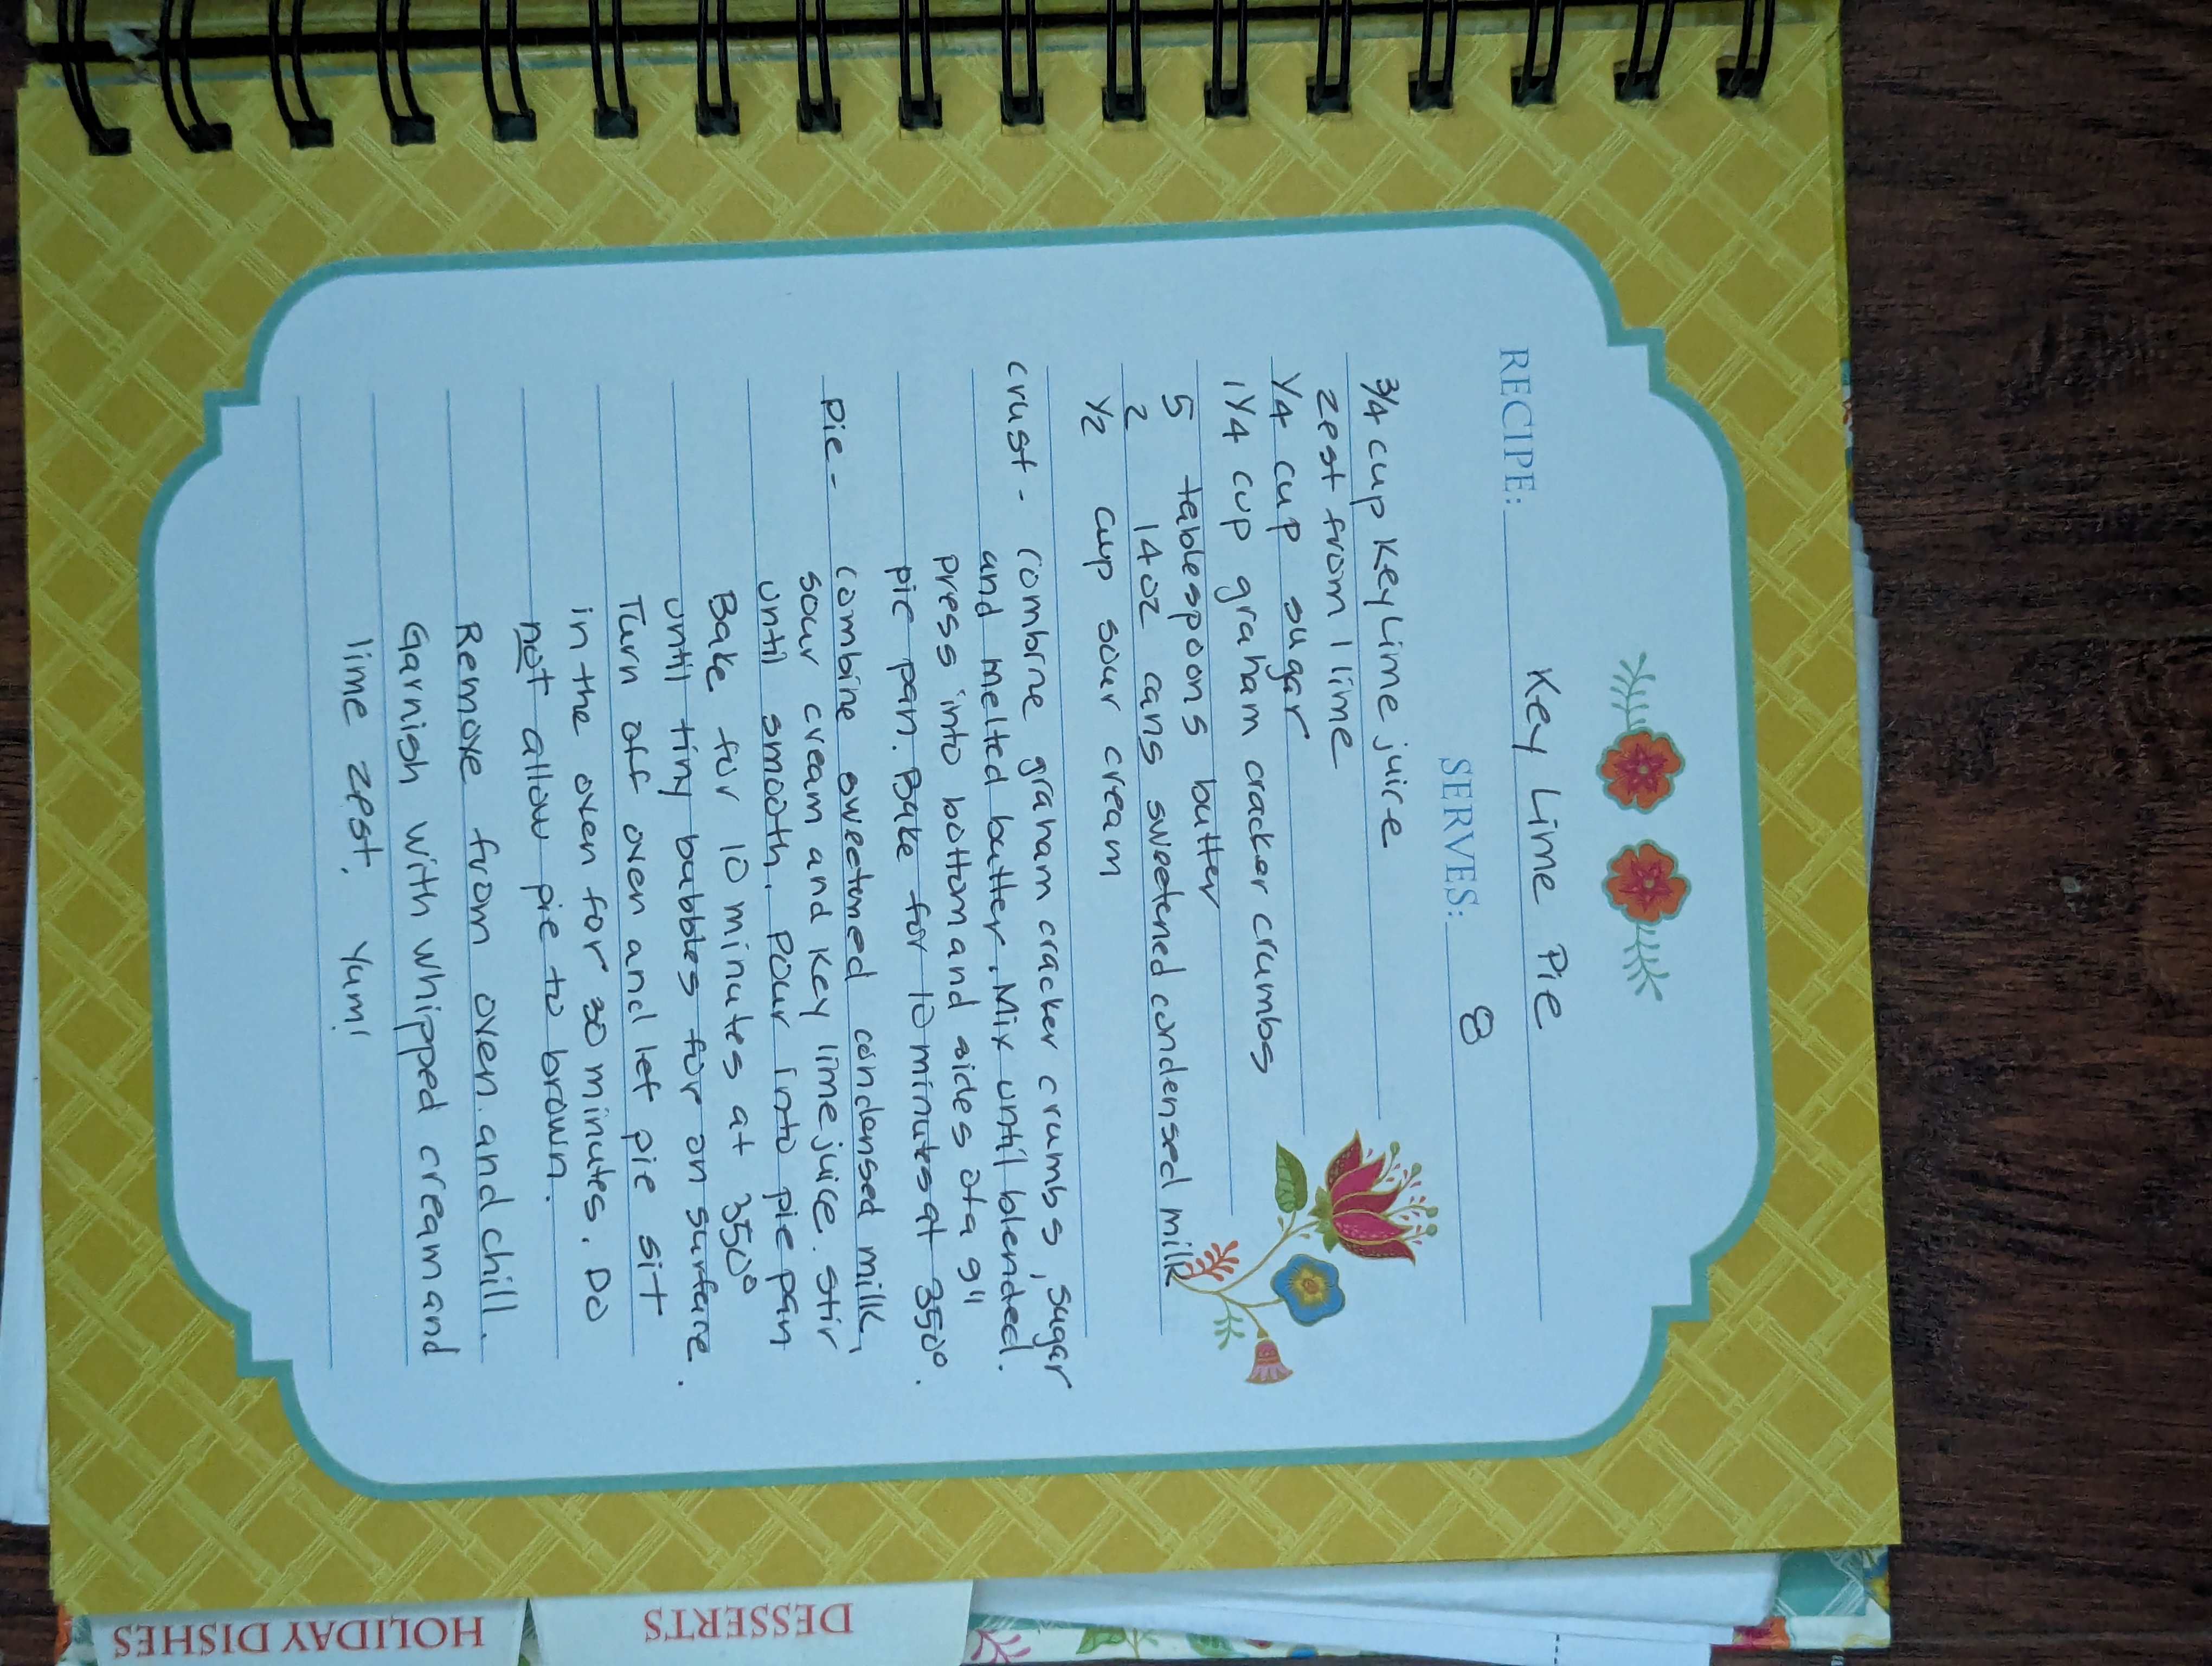 RECIPE: Key Lime Pie
SERVES: 8
3/4 cup Key Lime juice
zest from 1 lime
1/4 cup sugar
1 1/4 cup graham cracker crumbs
5 tablespoons butter
2 14oz cans sweetened condensed milk
1/2 cup sour cream
crust - combine graham cracker crumbs, sugar
and melted butter. Mix until blended.
Press into bottom and sides of a 9"
pie pan. Bake for 10 minutes at 350°.
Pie - combine sweetened condensed milk,
sour cream and key lime juice. Stir
until smooth. Pour into pie pan
Bake for 10 minutes at 350°
until tiny bubbles for on surface.
Turn of oven and let pie sit
in the oven for 30 minutes. Do
not allow pie to brown.
Remove from oven and chill.
Garnish with whipped cream and
lime zest. Yum!
DESSERTS
HOLIDAY DISHES